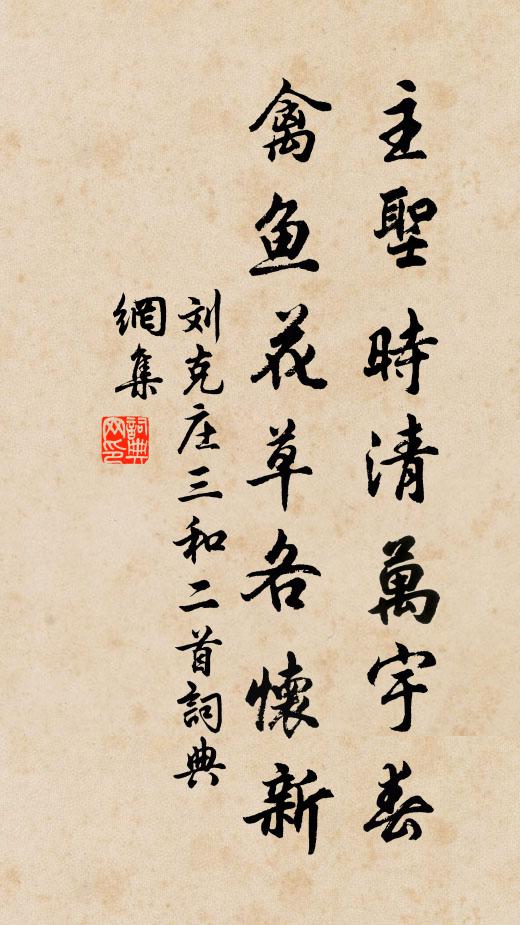 主聖時清萬宇春
禽鱼花草各懷新
刘克庄三和二首詞典
網集
詞典
网印